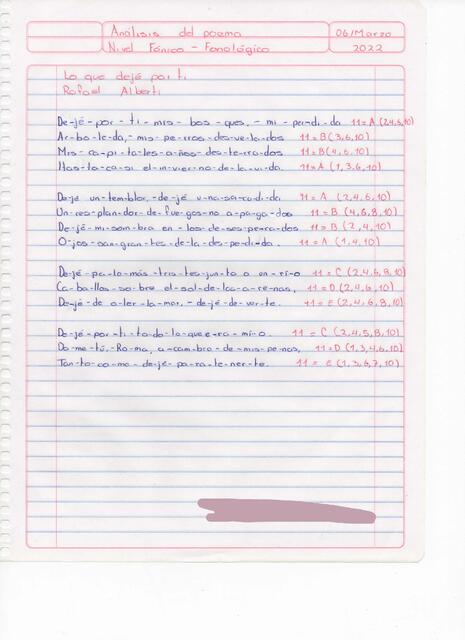 Análisis del poema
Nivel Fónico - Fonológico
06/Marzo
2022
Lo que dejé por ti
Rafael Alberti
De-jé-por-ti-mis-bos-ques,-mi-per-di-da 11=A (2,4,6,10)
Ar-bo-le-da,-mis-pe-rros-des-ve-la-dos 11=B (3,6,10)
Mis-ca-pi-ta-les-a-ños-des-te-rra-dos 11=B (4,6,10)
Has-ta-ca-si el-in-vier-no-de-la-vi-da. 11=A (1,3,6,10)
De-jé un-tem-blor,-de-jé u-na-sa-cu-di-da 11=A (2,4,6,10)
Un-res-plan-dor-de-fue-gos-no a-pa-ga-dos 11=B (4,6,8,10)
De-jé-mi-som-bra en-los-de-ses-pe-ra-dos 11=B (2,4,10)
O-jos-san-gran-tes-de-la-des-pe-di-da. 11=A (1,4,10)
De-jé-pa-lo-más-tris-tes-jun-to a un-rí-o 11=C (2,4,6,8,10)
Ca-ba-llos-so-bre el-sol-de-las-a-re-nas, 11=D (2,4,6,10)
De-jé-de o-ler-la-mar,-de-jé-de-ver-te. 11=E (2,4,6,8,10)
De-jé-por-ti-to-do-lo-que e-ra-mí-o. 11=C (2,4,5,8,10)
Da-me-tú,-Ro-ma, a-cam-bio-de-mis-pe-nas, 11=D (1,3,4,6,10)
Tan-to-co-mo-de-jé-pa-ra-te-ner-te. 11=E (1,3,6,7,10)